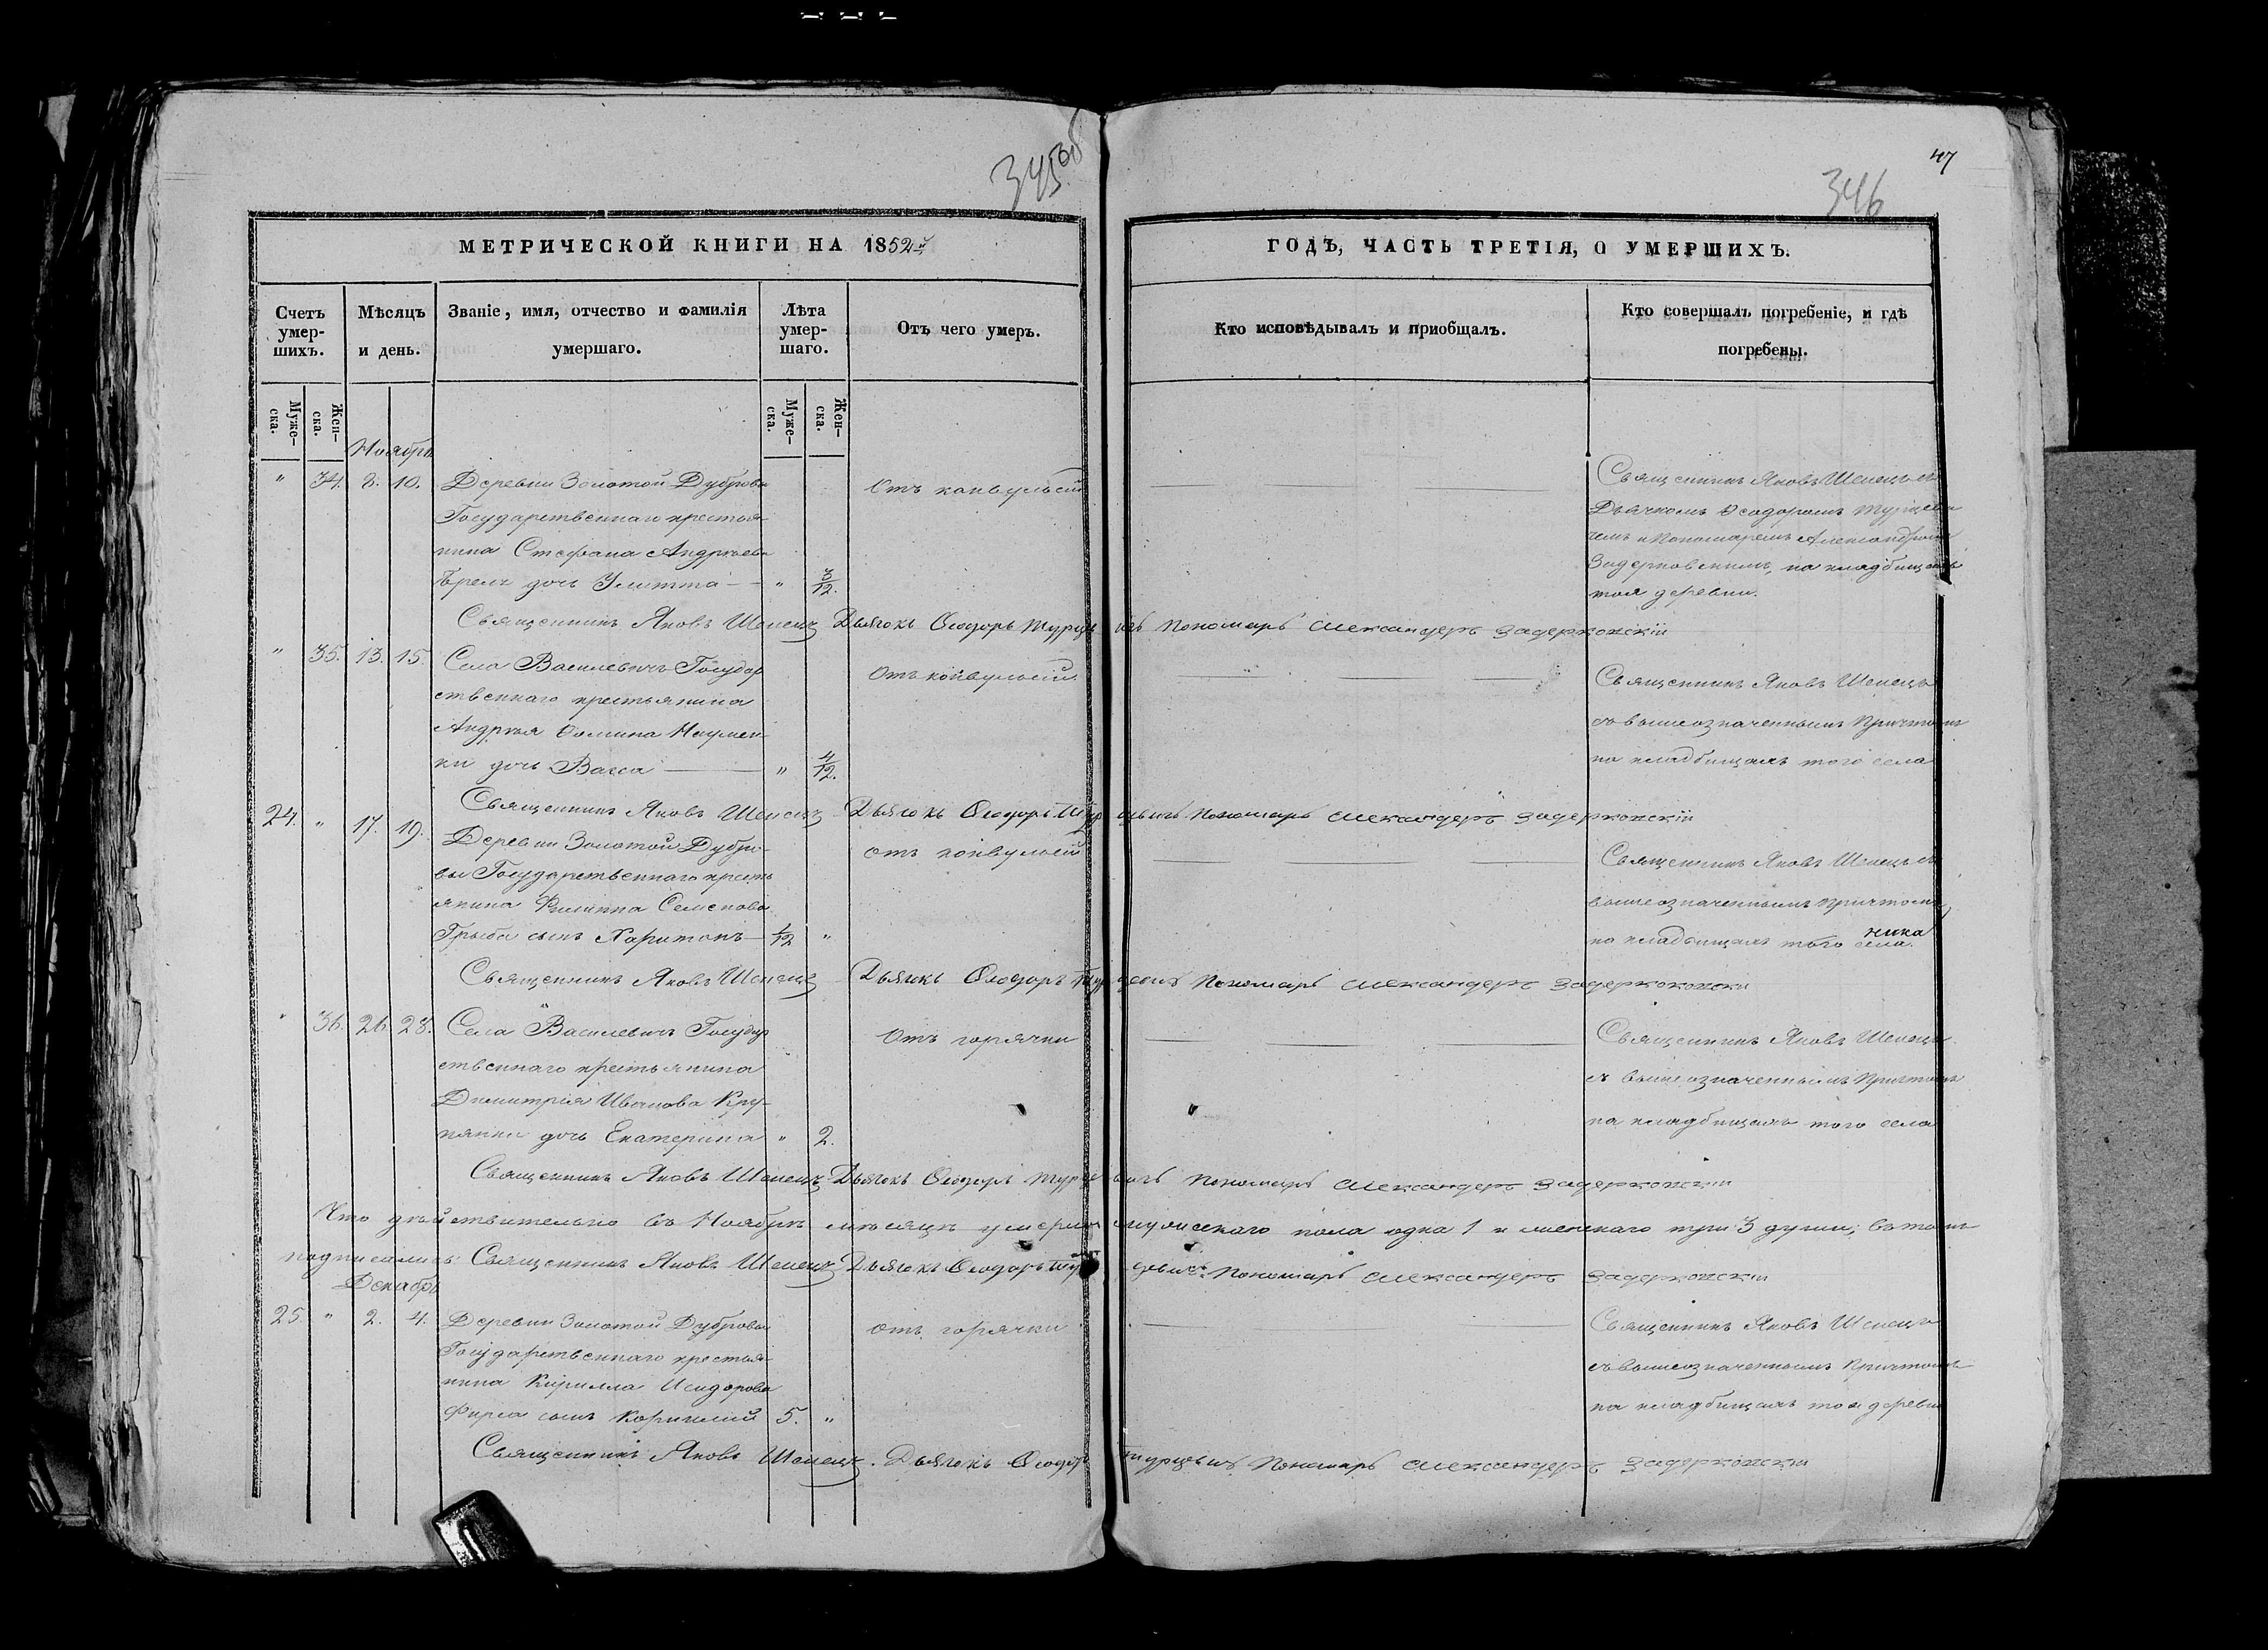 345об
47
346
МЕТРИЧЕСКОЙ КНИГИ НА 1852й
ГОДЪ, ЧАСТЬ ТРЕТІЯ, О УМЕРШИХЪ.
Счетъ умер-шихъ.
Мѣсяцъ и день.
Званіе, имя, отчество и фамилія умершаго.
Лѣта умер-шаго.
Отъ чего умеръ.
Кто исповѣдывалъ и приобщалъ.
Кто совершалъ погребеніе, и гдѣ погребены.
Муже-ска.
Жен-ска.
Муже-ска.
Жен-ска.
Ноябрь
" 34. 8. 10. Деревни Золотой Дубровы
Государственнаго крестья-
нина Стефана Андреева
дочь Улитта — " 3/12.
Отъ конвульсій
Священникъ Яковъ Шепецъ съ
Дьячкомъ Ѳеодоромъ Турцеви-
чемъ и Пономаремъ Александромъ
Задерковскимъ, на кладбищахъ
тоя деревни.
Священникъ Яковъ Шепецъ Дьячокъ Ѳеодоръ Турцевичъ Пономарь Александеръ Задерковскій
" 35. 13. 15. Села Василевичъ Государ
ственнаго крестьянина
Андрея Ѳомина Наумен-
ки дочь Васса — " 4/12.
Отъ конвульсій
Священникъ Яковъ Шепецъ
съ вышеозначеннымъ Причтомъ
на кладбищахъ того села
Священникъ Яковъ Шепецъ Дьячокъ Ѳеодоръ Турцевичъ Пономарь Александеръ Задерковскій
24. " 17. 19. Деревни Золотой Дубро-
вы Государственнаго кресть
янина Филиппа Семенова
Грыба сынъ Харитонъ — 1/12 "
отъ конвульсій
Священникъ Яковъ Шепецъ съ
вышеозначеннымъ Причтомъ,
на кладбищахъ того села.
Священникъ Яковъ Шепецъ Дьячокъ Ѳеодоръ Турцевичъ Пономарь Александеръ
" 36. 26. 28. Села Василевичъ Государ
ственнаго крестьянина
Димитрія Иванова Кру-
дочь Екатерина " 2.
Отъ горячки
Священникъ Яковъ Шепецъ
съ вышеозначеннымъ Причтомъ
на кладбищахъ того села
Священникъ Яковъ Шепецъ Дьячокъ Ѳеодоръ Турцевичъ Пономарь Александеръ Задерковскій
Что дѣйствительно въ Ноябрѣ мѣсяцѣ умерло мужескаго пола одна 1 и женскаго три 3 души, въ томъ
подписались: Священникъ Яковъ Шепецъ Дьячокъ Ѳеодоръ Турцевичъ Пономарь Александеръ Задерковскій
Декабрь
25. " 2. 4. Деревни Золотой Дубровы
Государственнаго крестья-
нина Кирилла Исидорова
Фирса сынъ Корнилій 5. "
отъ горячки
Священникъ Яковъ Шепецъ
съ вышеозначеннымъ Причтомъ
на кладбищахъ тоя деревни
Священникъ Яковъ Шепецъ. Дьячокъ Ѳеодоръ Турцевичъ Пономарь Александеръ Задерковскій